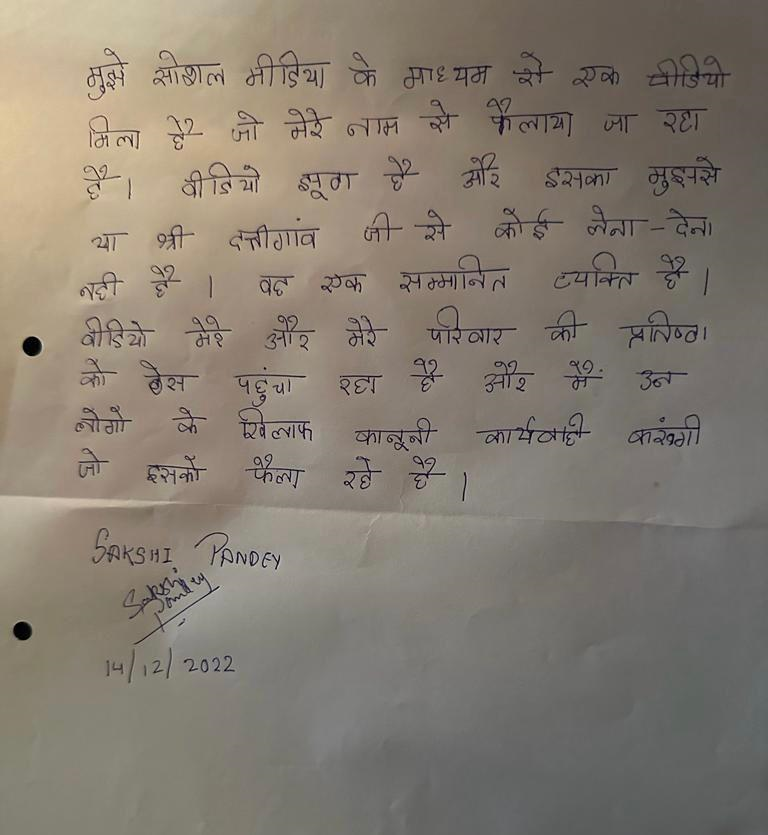 मुझे सोशल मीडिया के माध्यम से एक वीडियो
मिला है जो मेरे नाम से फैलाया जा रहा
है। वीडियो झूठा है और इसका मुझसे
या श्री दत्तीगांव जी से कोई लेना-देना
नही है। वह एक सम्मानित व्यक्ति है।
वीडियो मेरे और मेरे परिवार की प्रतिष्ठा
को ठेस पहुंचा रहा है और मैं उन
लोगो के खिलाफ कानूनी कार्यवाही करूंगी
जो इसको फैला रहे है।
SAKSHI PANDEY
Sakshi
Pandey
14/12/2022